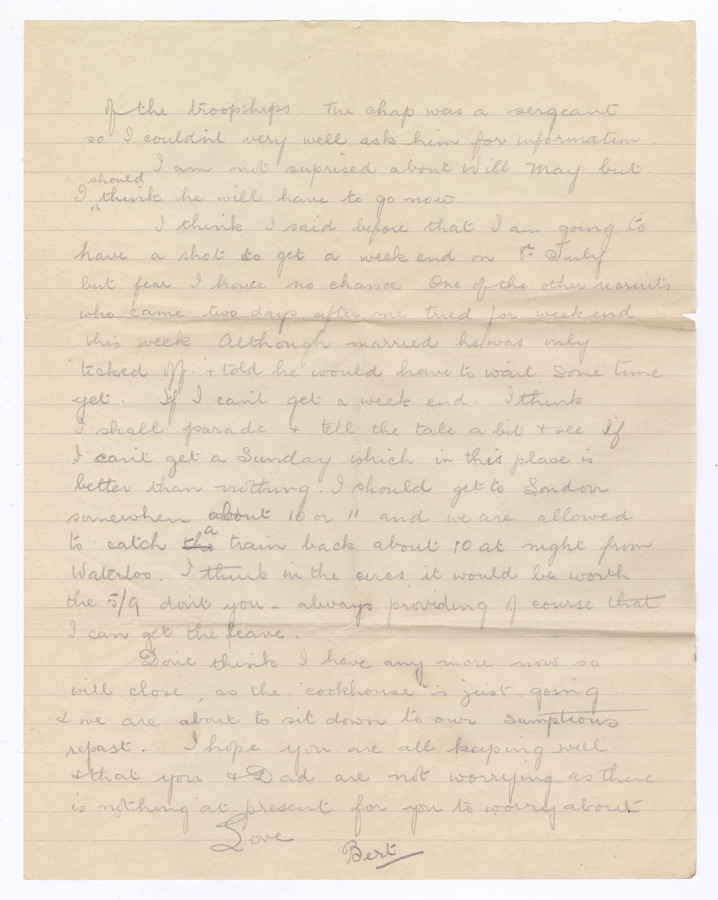 of the troopships. The chap was a sergeant
so I couldn't very well ask him for information.
I am not suprised about Will May but
I should think he will have to go now.
I think I said before that I am going to
have a shot to get a week end on 8th July
but fear I have no chance. One of the other recruits
who came two days after me tried for week end
this week. Although married he was only
ticked off. + told he would have to wait some time
yet. If I can't get a week end. I think
I shall parade + tell the tale a bit + see if
I can't get a Sunday which in this place is
better than nothing. I should get to London
somewhen about 10 or 11 and we are allowed
to catch the a train back about 10 at night from
Waterloo. I think in the circs it would be worth
the 5/9 don't you - always providing of course that
I can get the leave.
Don't think I have any more now so
will close, as the "cookhouse" is just going
& we are about to sit down to our sumptious
repast. I hope you are all keeping well.
& that you & Dad are not worrying as there
is nothing at present for you to worry about.
Love
Bert